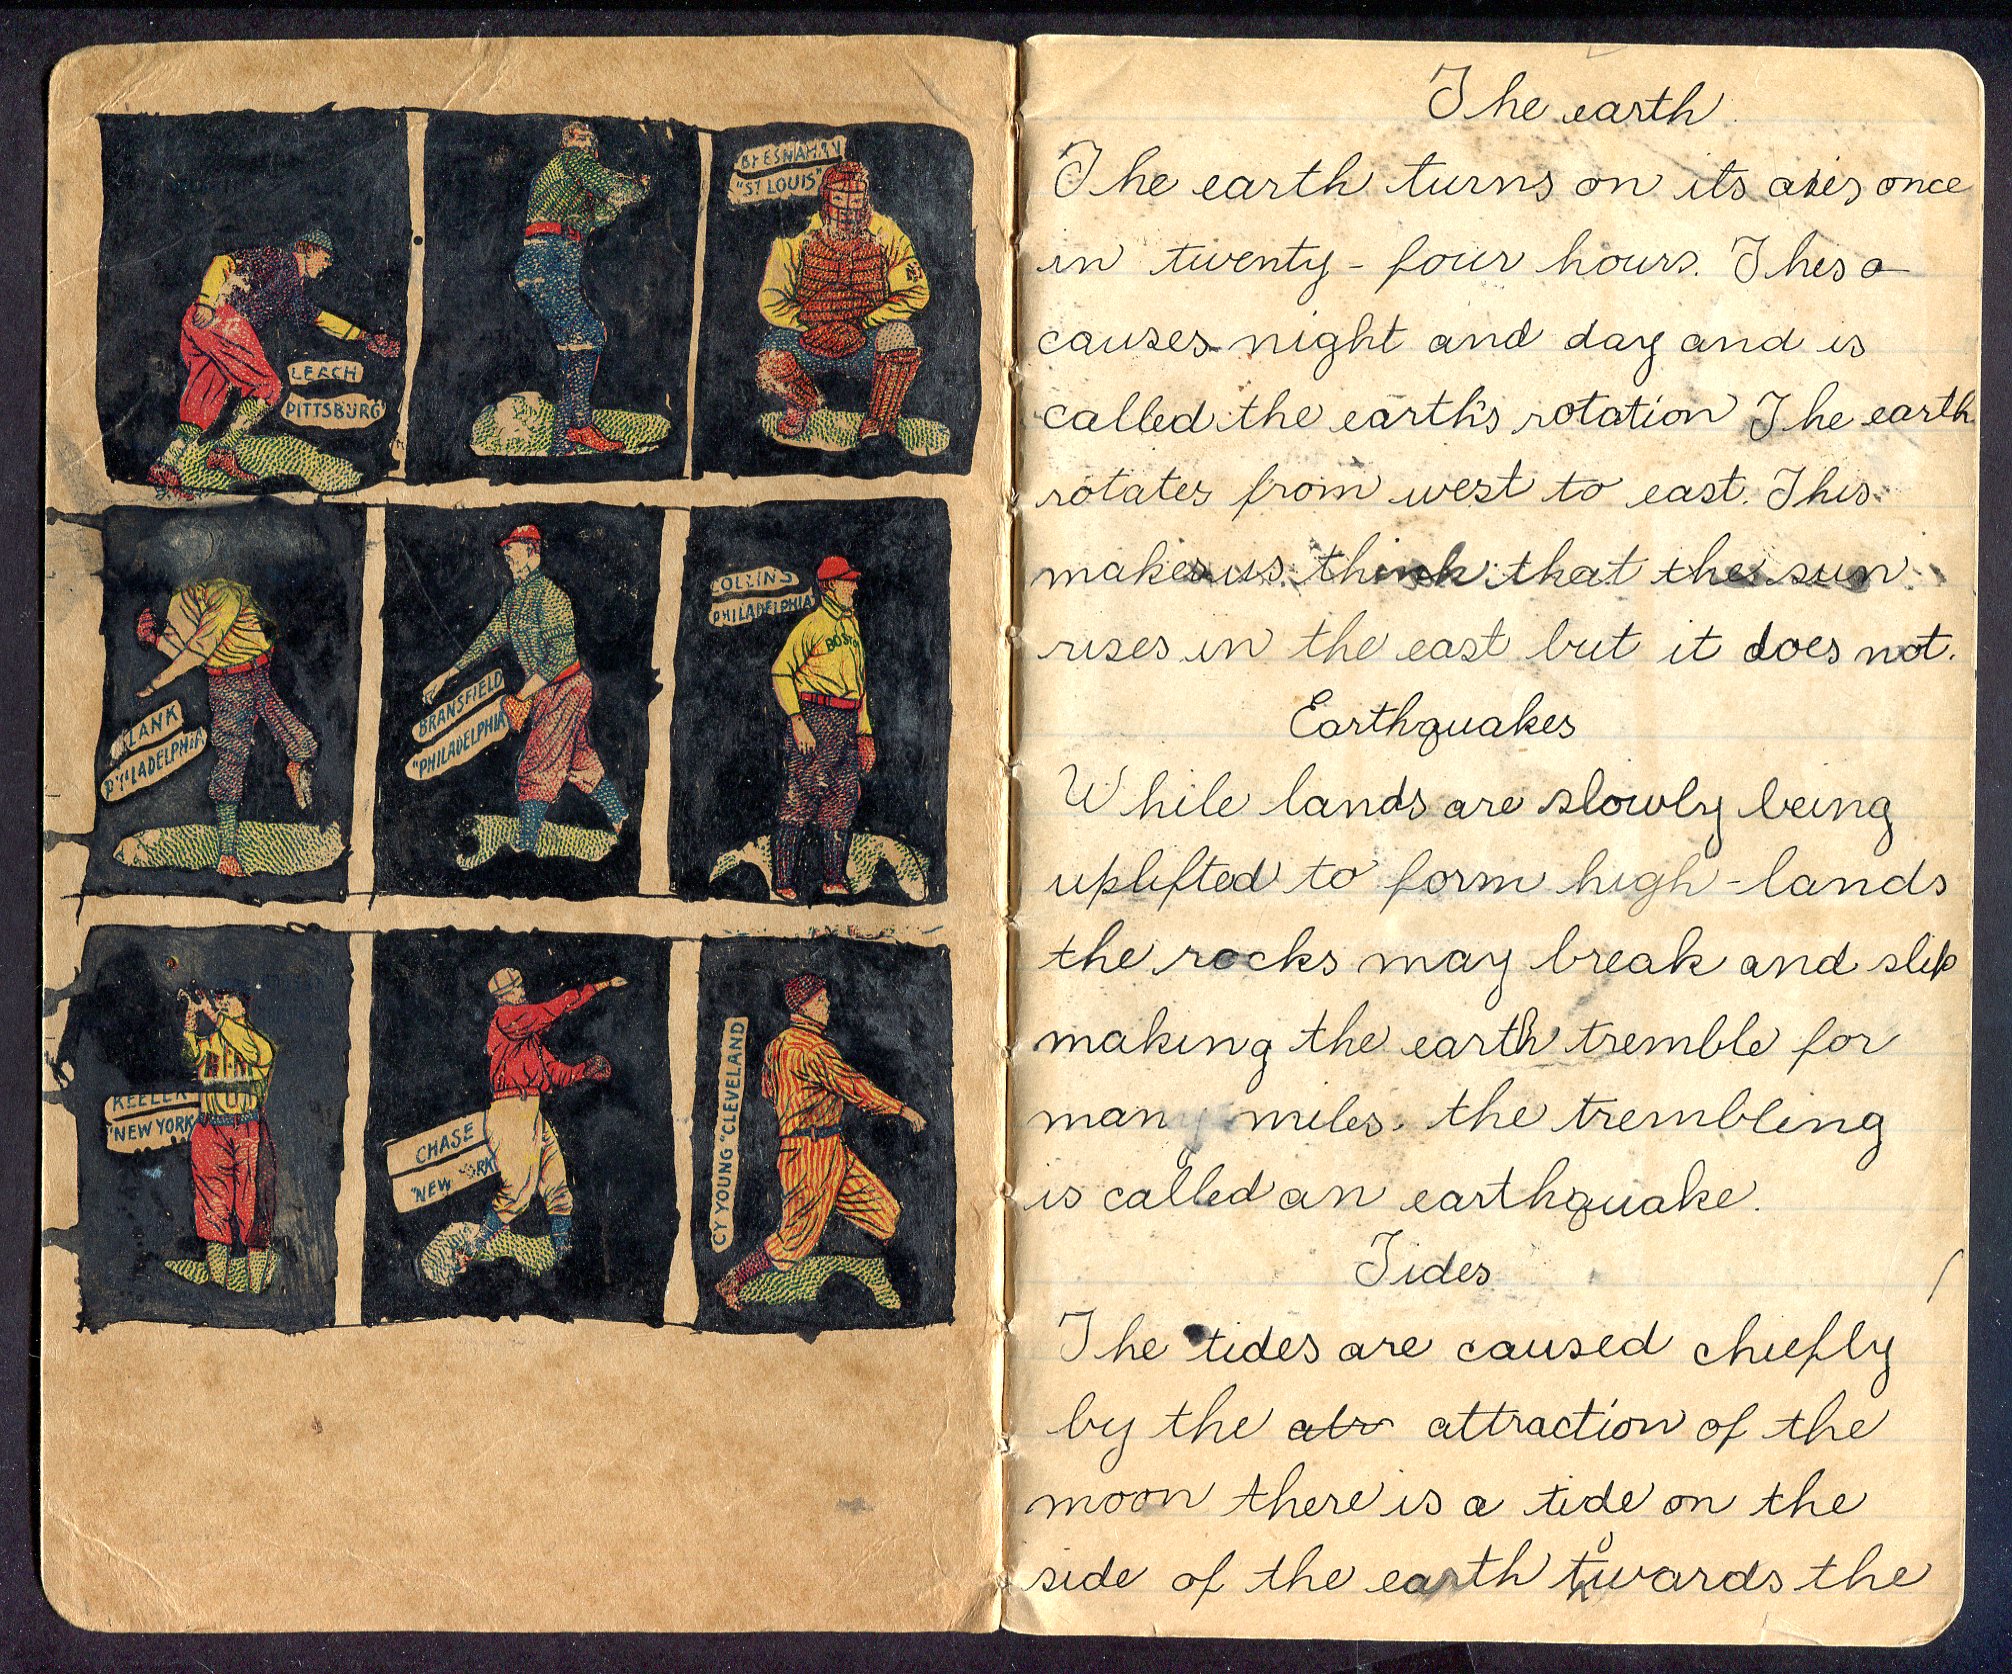 LEACH
PITTSBURG
BRESNAHAN
"ST LOUIS"
LANK
PHILADELPHIA
BRANSFIELD
"PHILADELPHIA
COLLINS
PHILADELPHIA
BOSTO
KEELER
"NEW YORK
CHASE
"NEW ORK
CY YOUNG "CLEVELAND
The earth
The earth turns on its axies once
in twenty-four hours. Thes a
causes night and day and is
called the earth's rotation The earth
rotates from west to east. This
makes us think that the sun
rises in the east but it does not.
Earthquakes
While lands are slowly being
uplifted to form high-lands
the rocks may break and slip
making the earth tremble for
many miles. the trembling
is called an earthquake.
Tides
The tides are caused chiefly
by the atr attraction of the
moon there is a tide on the
side of the earth towards the